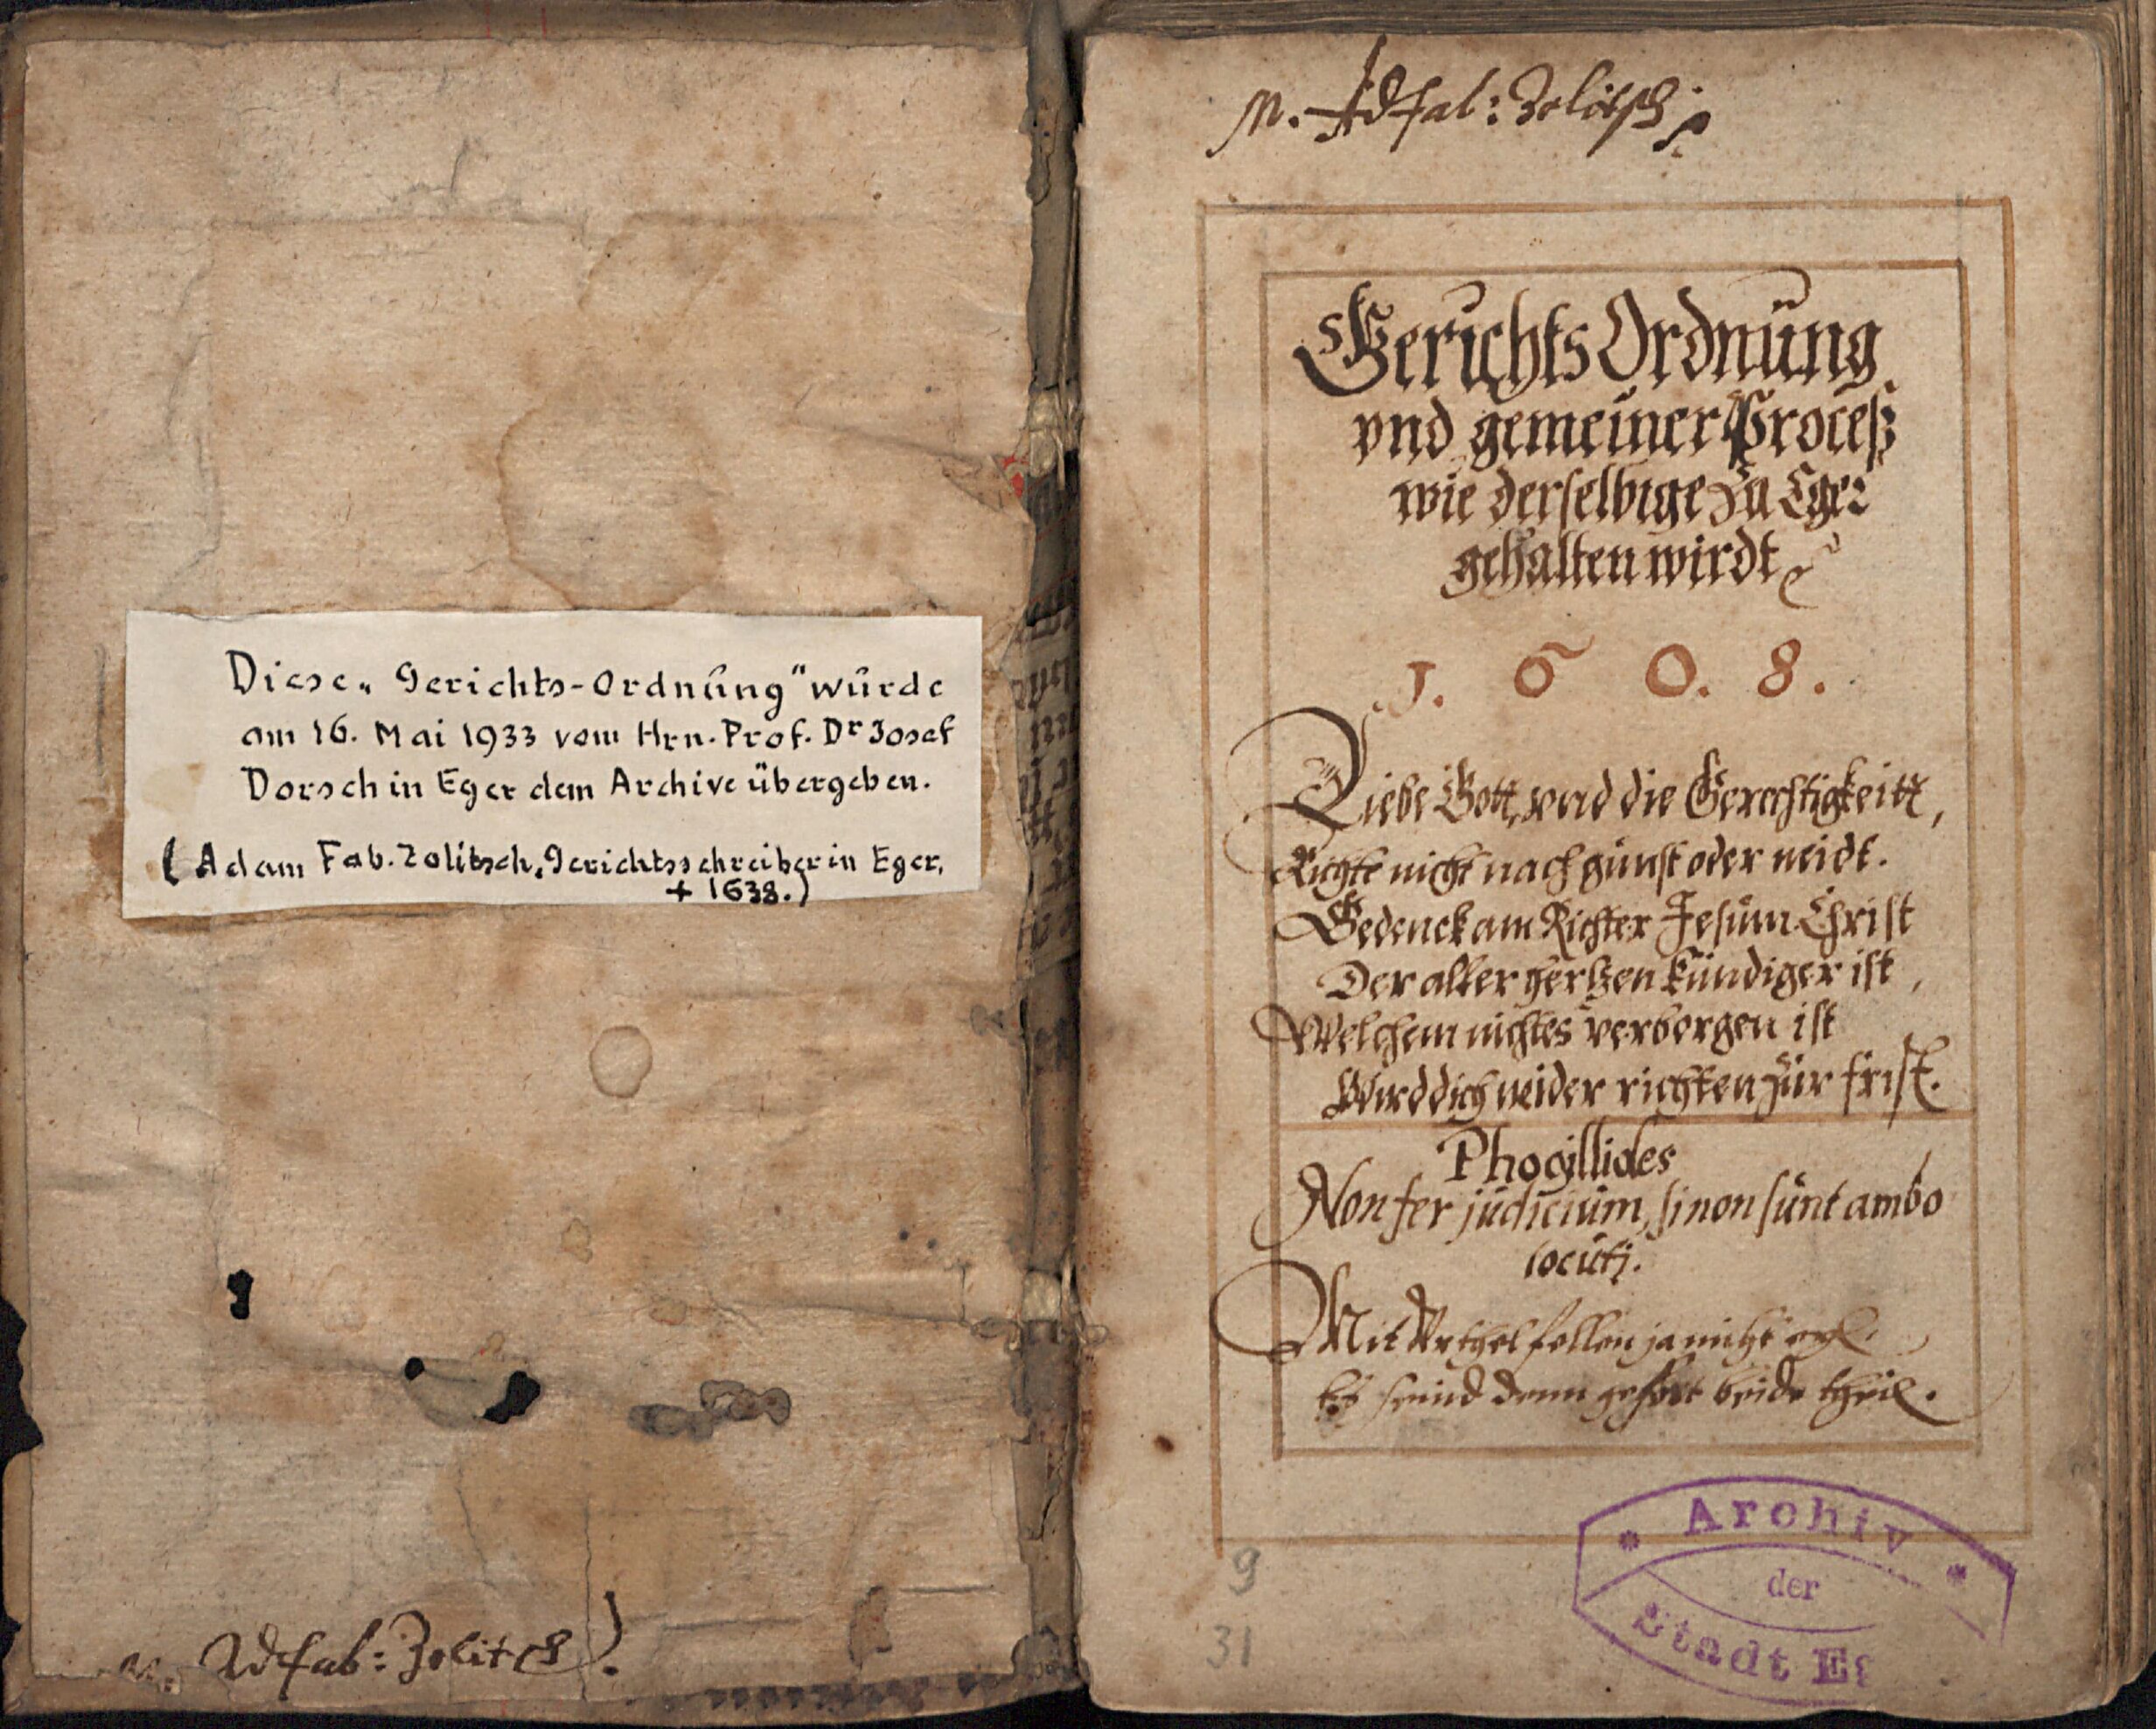 Diese „Gerichts-Ordnung" wurde
am 16. Mai 1933 vom Hrn. Prof. Dr Josef
Dorsch in Eger dem Archive übergeben.
(Adam Fab. Zolitsch, Gerichtsschreiber in Eger,
+ 1638.)
M. Ad fab: Zolitsch.
M. Ad fab: Zolitsch
Gerichts Ordnung
vnd gemeiner Proceß
wie derselbige zu Eger
gehalten wirdt
1. 6 0. 8.
Liebe Gott, vnd die Gerechtigkeitt,
Richte nicht nach gunst oder neidt.
Gedenck am Richter Jesum Christ
Der aller hertzen kündiger ist,
Welchem nichtes verborgen ist
Wird dich wider richten zur frist.
Phocillides
Non fer judicium, si non sunt ambo
locuti.
Mit Vrthel fellen ja nicht eyl.
Es seind denn gehört beide theil.
9
31
Archiv
der
Stadt Eg